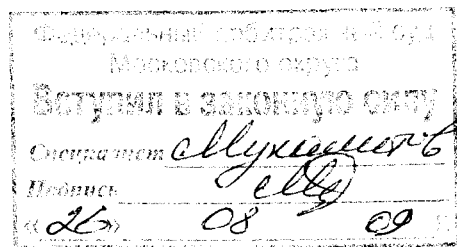 Федеральный арбитражный суд
Московского округа
Вступил в законную силу
Специалист
Подпись
«26» 08 09